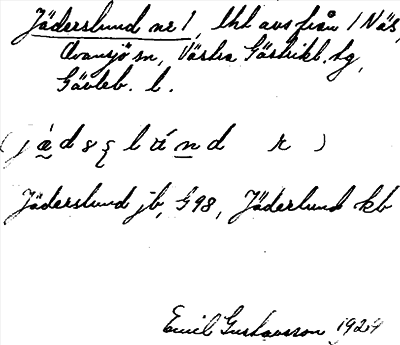 Jäderslund nr 1, lht avs från 1 Näs,
Ovansjö sn, Västra Gästrikl. tg,
Gävleb. l.
Jäderslund jb, G98, Jäderlund kb
Emil Gustavsson 1924